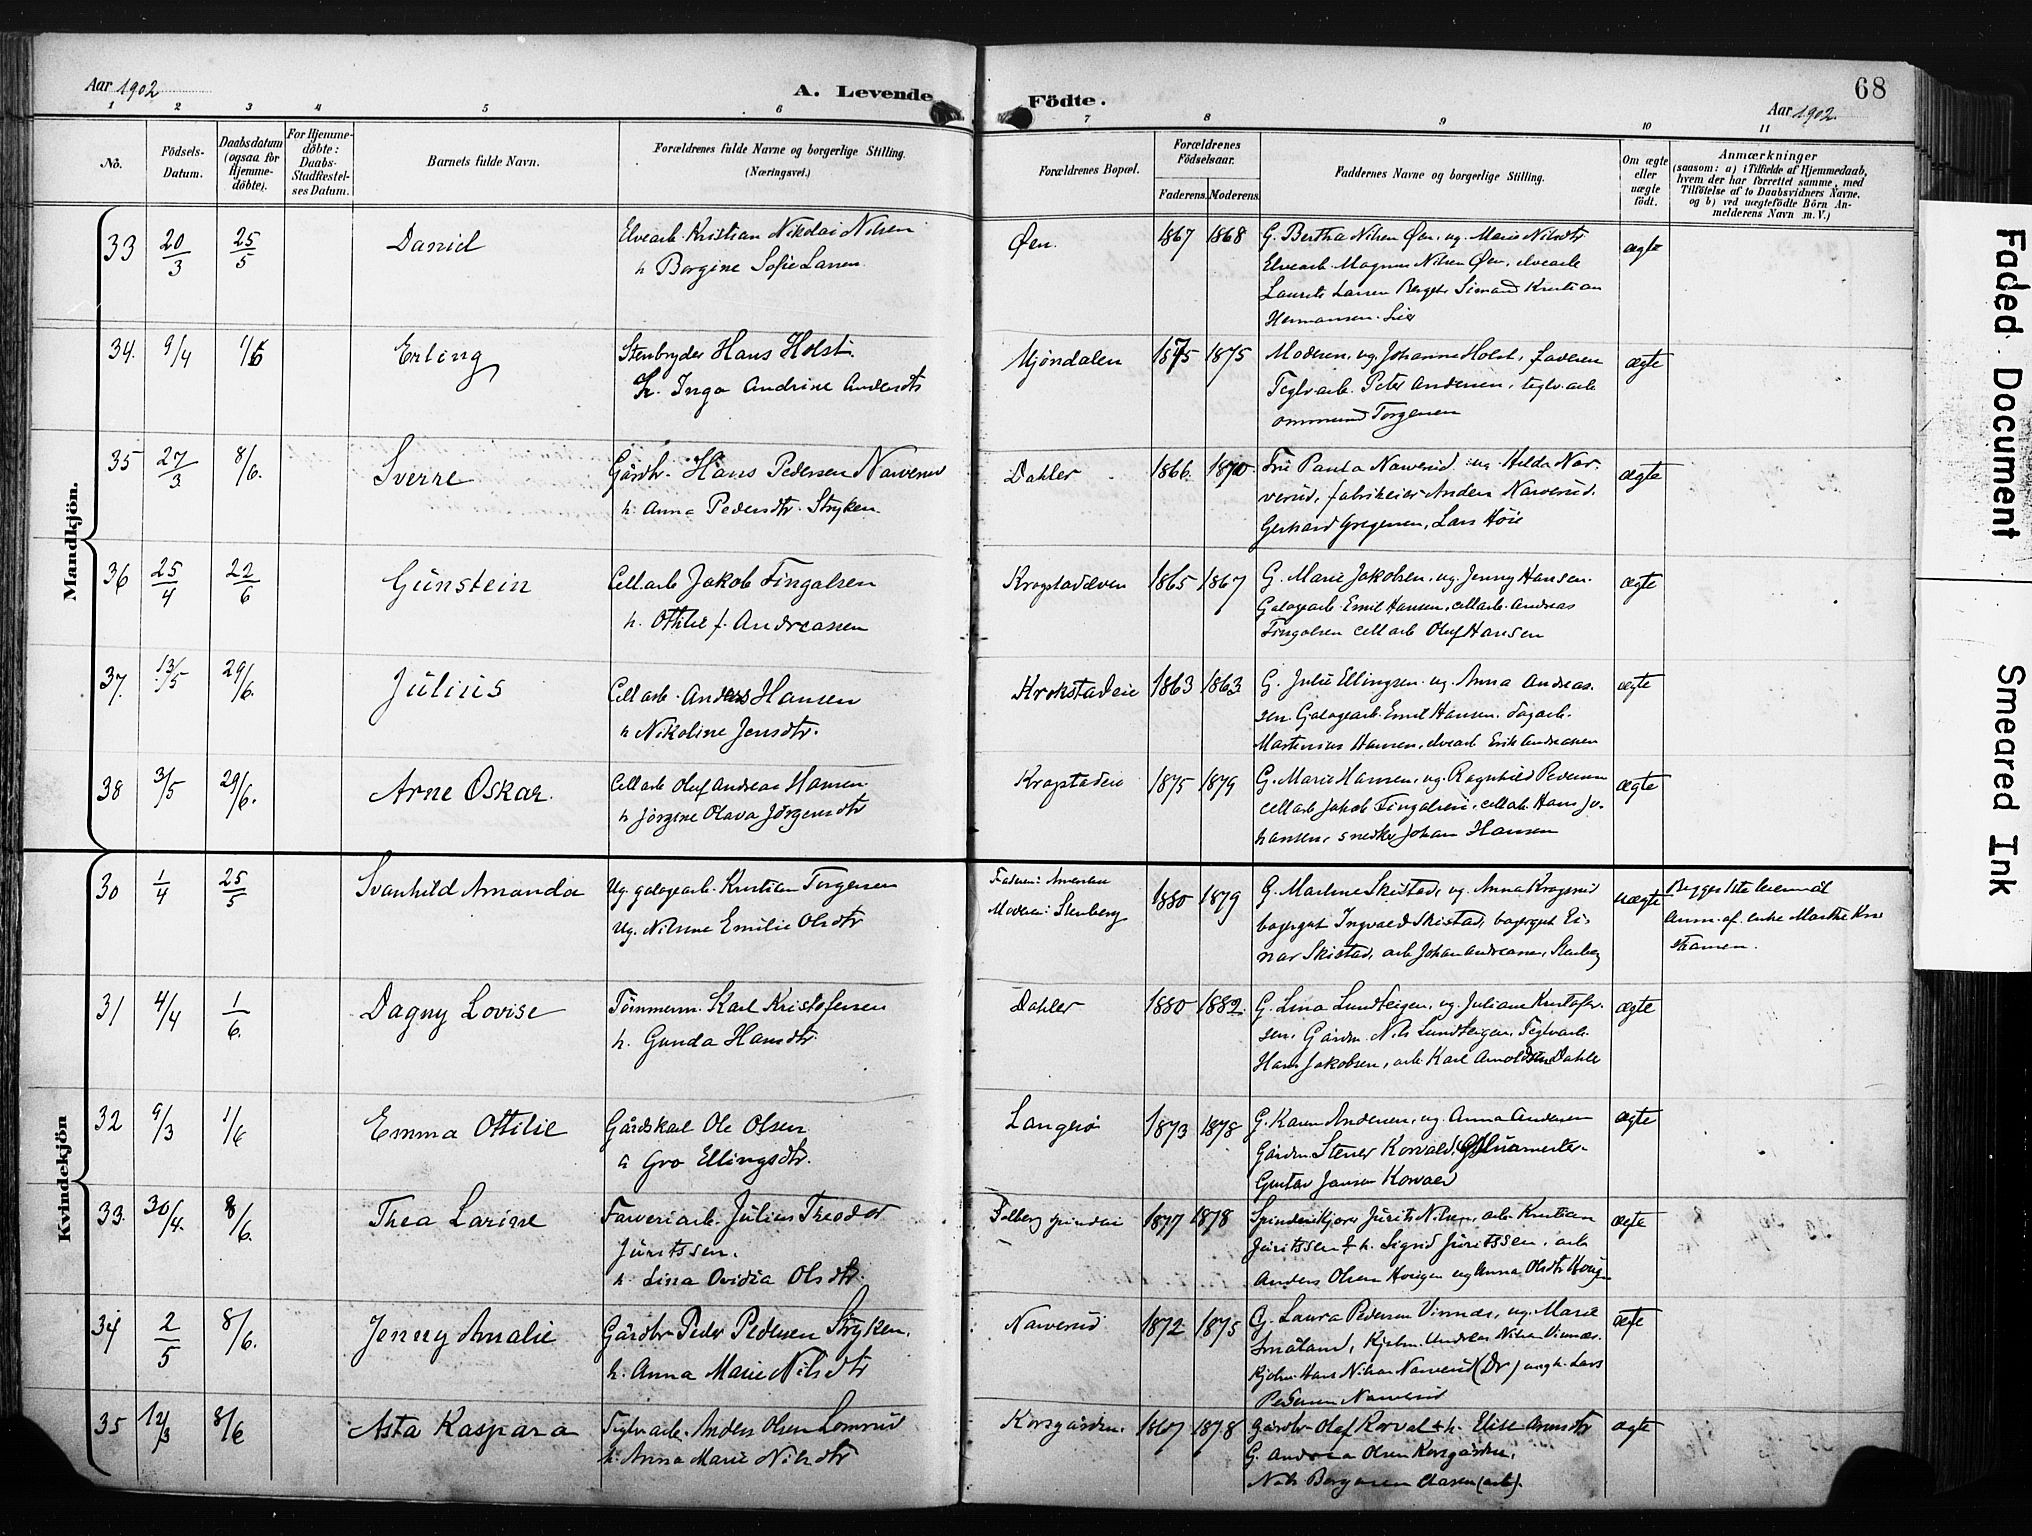 Aar 1902
A. Levende Födte.
68
Aar 1902
1 2 3 4 5 6 7 8 9 10 11
No.
Födsels-Datum.
Daabsdatum (ogsaa for Hjemme-döbte).
For Hjemme-döbte: Daabs-Stadfestel-ses Datum.
Barnets fulde Navn.
Forældrenes fulde Navne og borgerlige Stilling.
(Næringsvei.)
Forældrenes Bopæl.
Forældrenes Födselsaar.
Faderens. Moderens.
Faddernes Navne og borgerlige Stilling.
Om ægte eller uægte födt.
Anmærkninger
(saasom: a) i Tilfælde af Hjemmedaab,
hvem der har forrettet samme, med
Tilföielse af to Daabsvidners Navne.
og b) ved uægtefödte Börn An-
melderens Navn m.V.)
Mandkjön.
33 20/3 25/5 Daniel Elvearb. Kristian Nikolai Nilsen
h. Bergine Sofie Larsen
Øen. 1867 1868 G. Bertha Nilsen Øen, ug. Marie Nilsdtr
Elvearb. Magnus Nilsen Øen, elvearb
Laurits Larsen Simand Kristian
Hermansen Lier
ægte
34. 9/4 1/6 Erling Stenbryder Hans Holst
h. Inga Andrine Andersdtr
Mjöndalen 1875 1875 Moderen, ug. Johanne Holst, faderen
Teglv.arb. Peter Andersen, teglv.arb
Torgersen
ægte
35 27/3 8/6. Sverre Gårdbr. Hans Pedersen Narverud
h. Anna Pedersdtr. Stryken
Dahler 1866 1870. Frue Paula Narverud ug Hilda Nar-
verud, fabrikeier Anders Narverud.
Gerhard Gregersen, Lars Höie
ægte
36 25/4 22/6 Gunstein Cell arb Jakob Fingalsen
h. Ottilie f. Andreassen
Krogstadelven 1865 1867 G. Marie Jakobsen, ug. Jenny Hansen.
Galogearb. Emil Hansen, cellarb. Andreas
Fingalsen cell arb Oluf Hansen
ægte
37. 13/5 29/6. Julius Cell arb. Anders Hansen
h Nikoline Jensdtr.
Krokstadeie 1863 1863 G. Julie Ellingsen ug. Anna Andreas-
sen. Galogearb. Emil Hansen. dagarb.
Martinius Hansen, elvearb Erik Andreassen
ægte
38 3/5 29/6. Arne Oskar. Cell arb Oluf Andreas Hansen
h Jörgine Olava Jörgensdtr
Krogstadeie 1875 1879 G. Marie Hansen, ug. Ragnhild Pedersen
cellarb Jakob Fingalsen, cellarb. Hans Jo-
hansen, snedker Johan Hansen
ægte
Kvindekjön
30 1/4 25/5 Svanhild Amanda Ug. galogearb. Kristian Torgersen
Ug. Nilsine Emilie Olsdtr
Faderen: Amerika
Moderen: Stenberg
1880 1879 G. Marlene Skistad, ug. Anna
bagergut Ingvald Skistad, bagergut Ei-
nar Skistad, arb Johan Andreassen, Stenberg
uægte
Begges 1ste leiermål
Anm. af enke Marthe
31 4/4 1/6. Dagny Lovise Tömmerm. Karl Kristofersen
h. Gunda Hansdtr.
Dahler 1880 1882. G. Lina Lundteigen, ug. Juliane Kristofer-
sen. Gårdm. Nils Lundteigen, Teglv.arb.
Hans Jakobsen, arb. Karl Arnoldsen Dahle
ægte
32 9/3 1/6 Emma Ottilie Gårdskal Ole Olsen
h Gro Ellingsdtr.
Langerö 1873 1878 G. Karen Andersen, ug. Anna Andersen
Gårdm. Stener Korvald,
Gustav Jansen Korvald
ægte
33. 30/4. 8/6. Thea Larine Farveriarb. Julius Theodor
Juritssen.
h. Lina Ovidia Olsdtr.
Solberg spinderi 1877 1878 Jurits Nilsen, arb. Kristian
Juritssen & h. Sigrid Juritssen, arb
Anders Olsen Horgen ug Anna Olsdtr
ægte
34 2/5 8/6. Jenny Amalie Gårdbr. Peder Pedersen Stryken.
h. Anna Marie Nilsdtr
Narverud 1872 1875 G. Laura Pedersen Vinnæs, ug. Marie
Småland, Kjelm. Andreas Nilsen Vinnæs.
Kjelm. Hans Nilsen Narverud (Dr) ungk. Lars
Pedersen Narverud
ægte
35 12/3 8/6 Asta Kaspara Teglv.arb. Anders Olsen Lomrud
h. Anna Marie Nilsdtr
Korsgården. 1867 1878 Gårdbr Olaf Korvald & h. Elise
G. Andrea Olsen Korsgården,
Nils Claesen (arb).
ægte
Faded Document
Smeared Ink